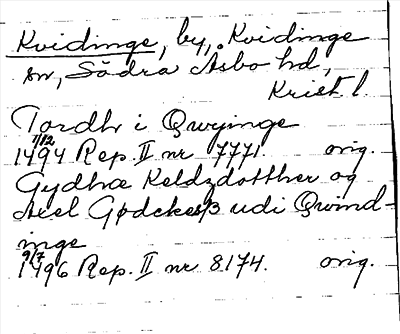 Kvidinge, by, Kvidinge
sn, Södra Åsbo hd,
Krist. l.
Tordh i Qwyinge
7/12
1494 Rep. II nr 7771 orig.
Gydhæ Keldzdotther og
Axel Gødckesß udi Qwind-
inge
9/7
1496 Rep. II nr 8174. orig.